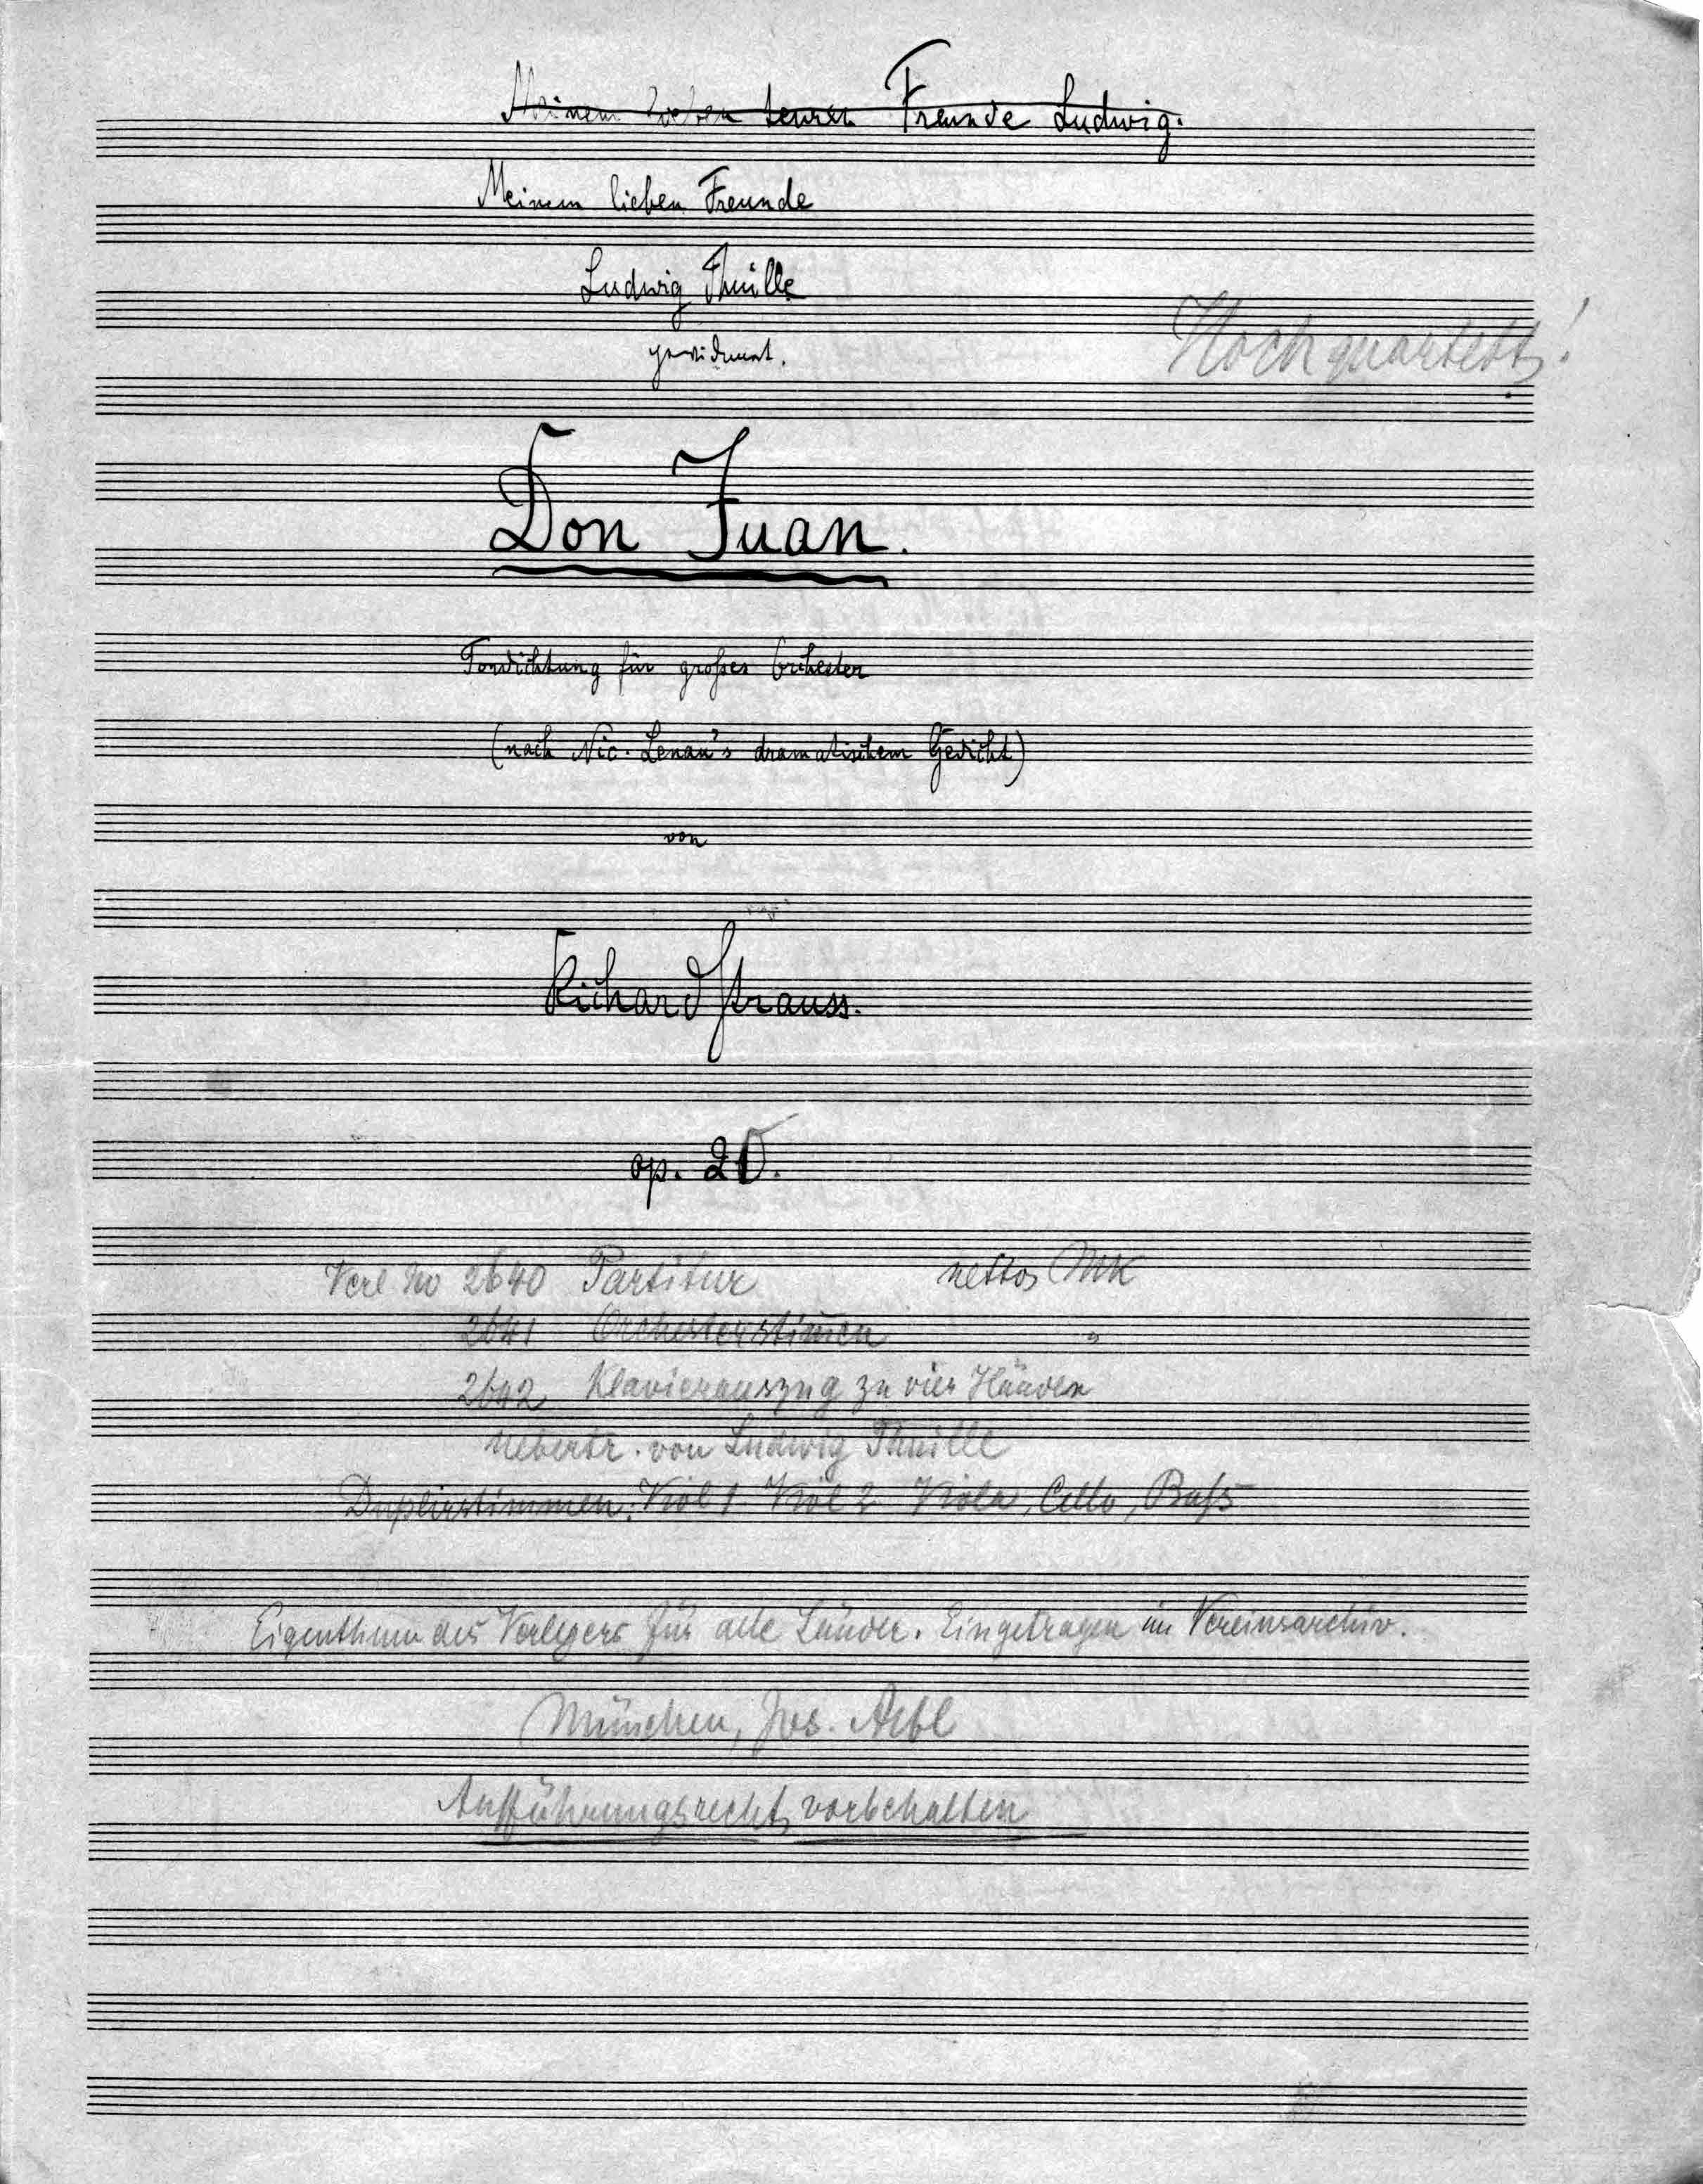 Meinem lieben teuren Freunde Ludwig.
Meinem lieben Freunde
Ludwig Thuille
gewidmet.
Hochquartett!
Don Juan.
Tondichtung für großes Orchester
(nach Nic. Lenau's dramatischem Gedicht)
von
Richard Strauss.
op. 20.
Verl No 2640 Partitur netto Mk
2641 Orchesterstimmen "
2642 Klavierauszug zu vier Händen
Uebertr. von Ludwig Thuille
Duplierstimmen: Viol 1 Viol 2 Viola, Cello, Baß
Eigenthum des Verlegers für alle Länder. Eingetragen im Vereinsarchiv.
München, Jos. Aibl
Aufführungsrecht vorbehalten